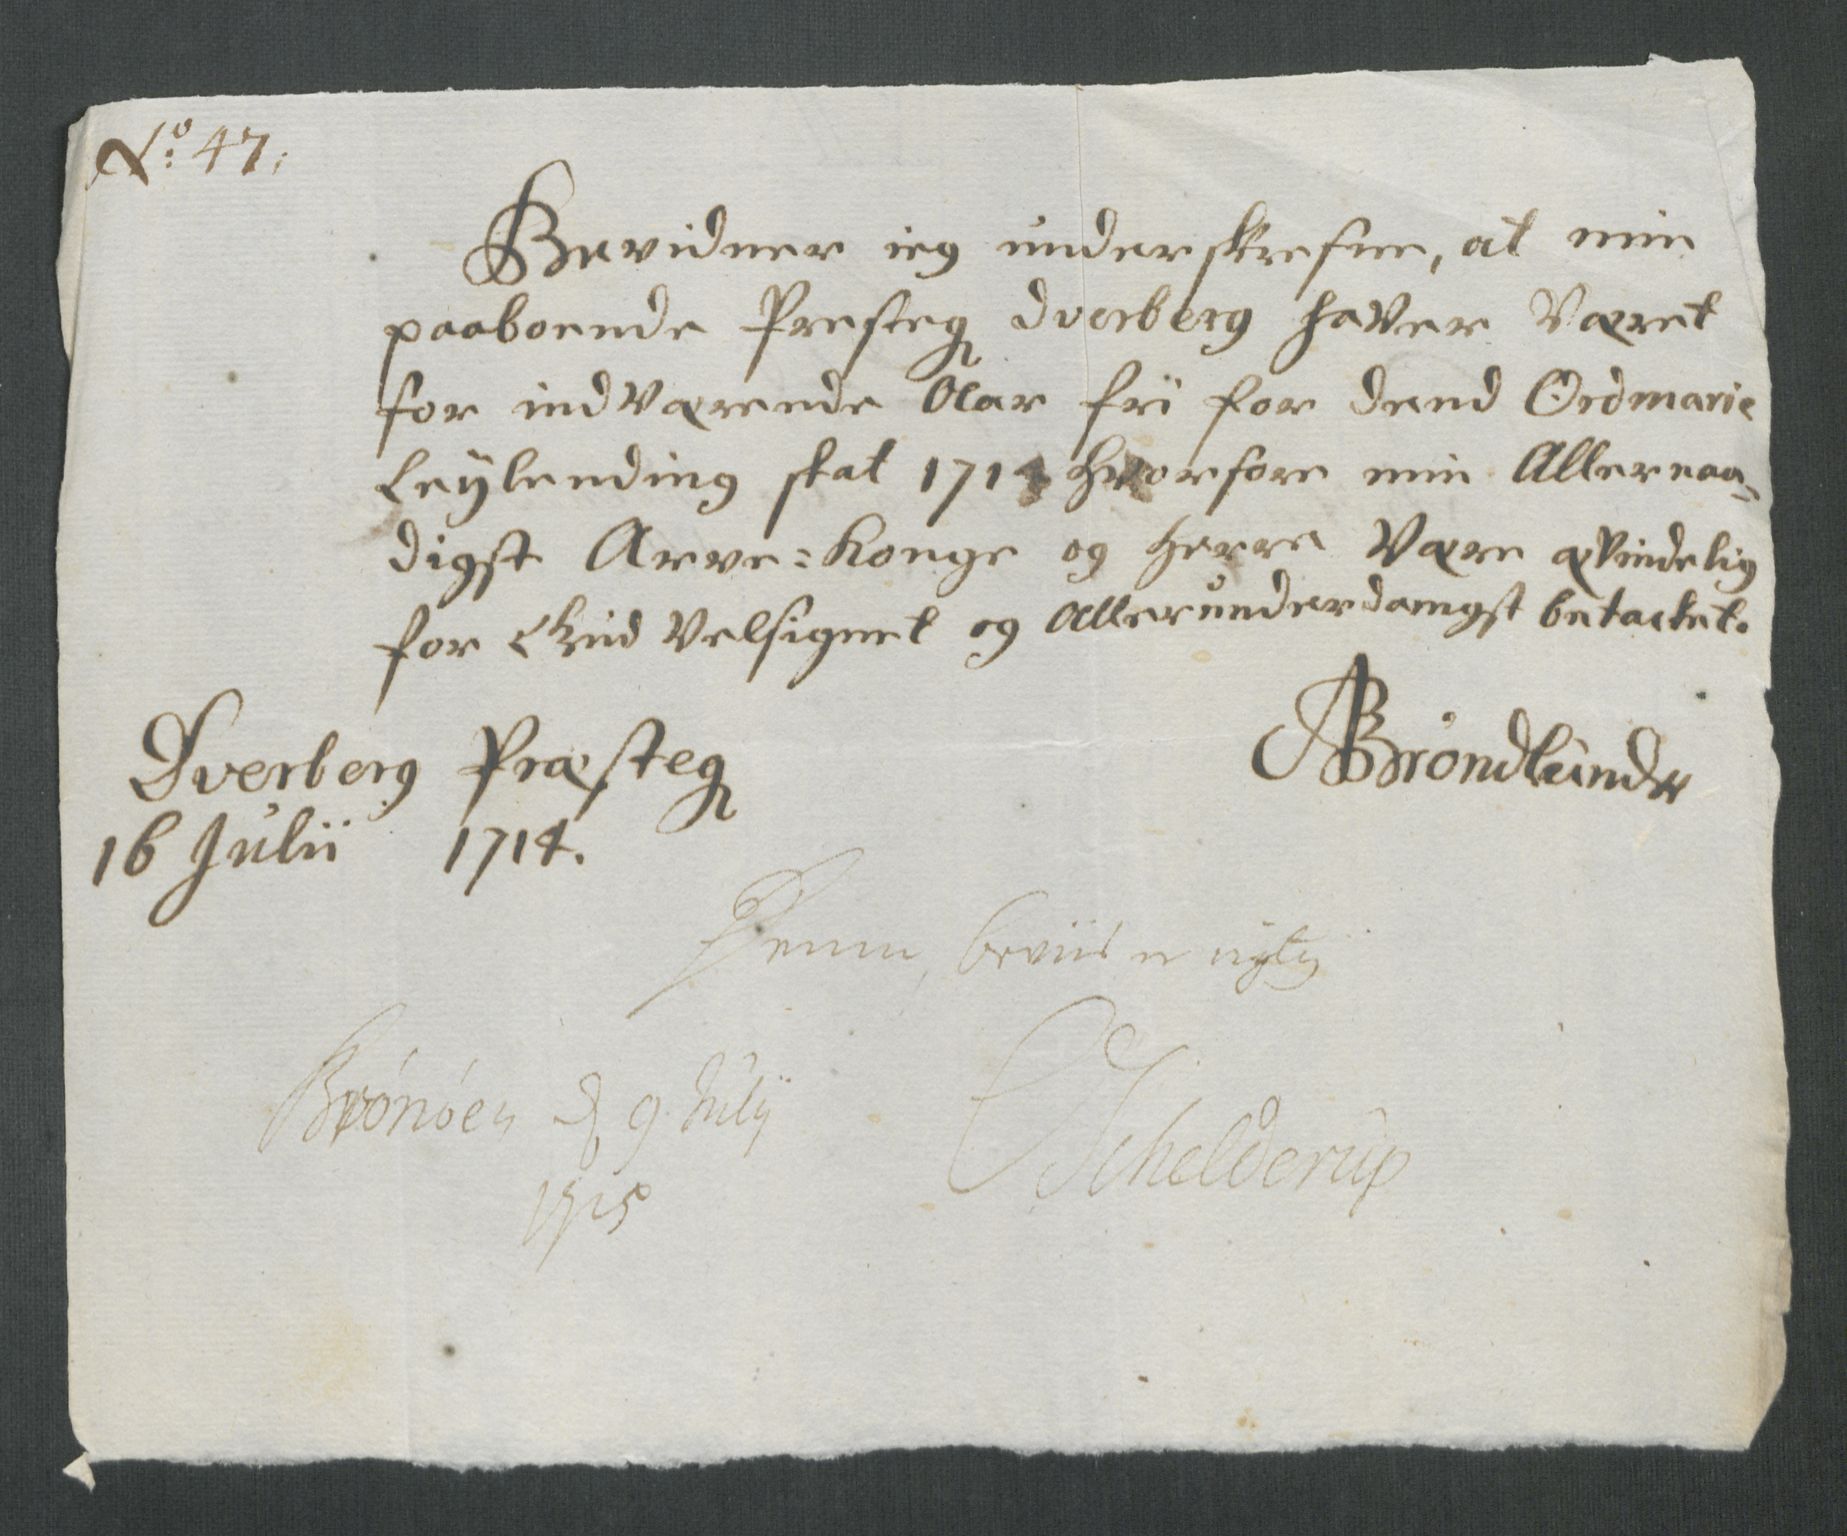 No: 47.
Bevidner ieg underskrefne, at min
paaboende Presteg Dverberg haver Været
for indværende Aar fri for dend Ordinarie
Leylending skat 1714 hvorfore min Allernaa-
digst Arve=Konge og Herre Være ævindelig
for Velsignet og Allerunderdanigst betacket.
Dverberg Præsteg
ABröndlunder
16 Julii 1714.
Denne beviis er rigtig
Brönöen d 9 July
CSchelderup
1715